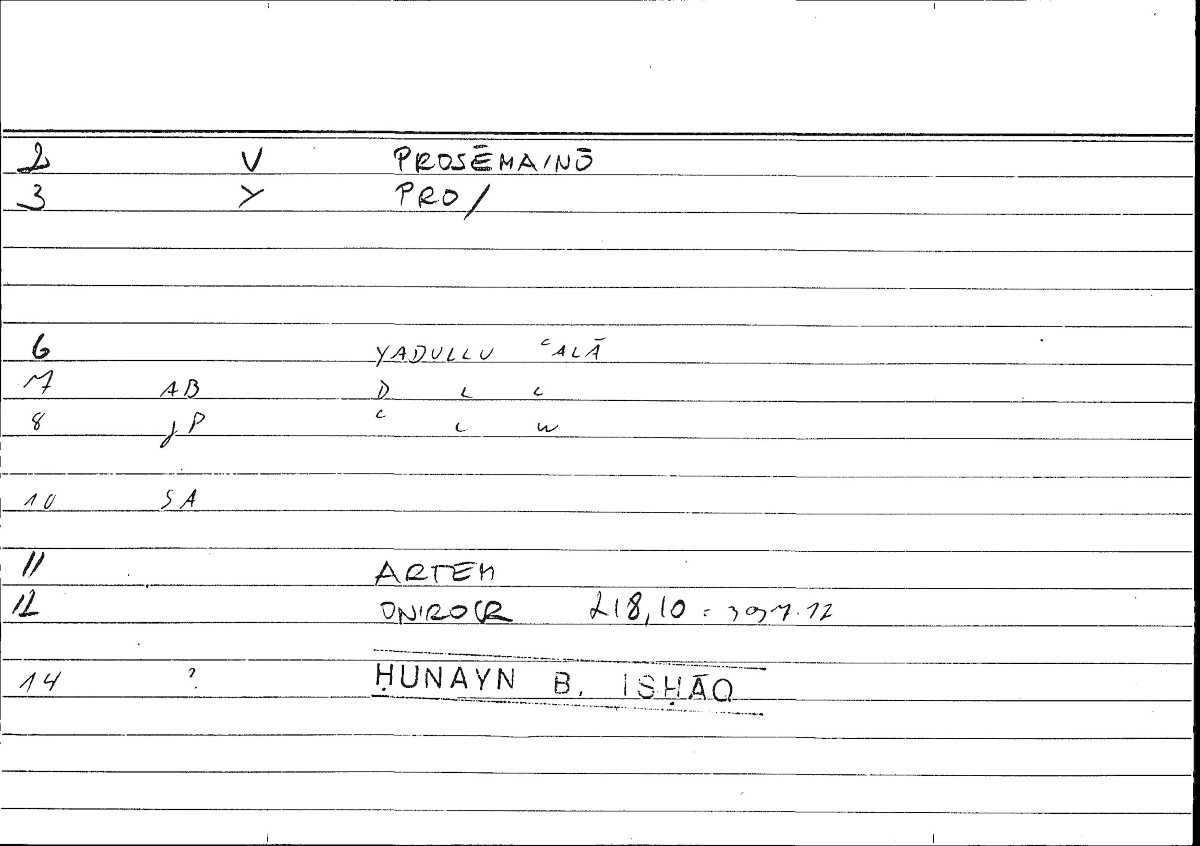 2 V PROSĒMAINŌ
3 Y PRO/
6 YADULLU ʿALĀ
7 AB D L L
8 JP ʿ L W
10 SA
11 ARTEM
12 ONIROCR 218,10 = 397.12
14 ? ḤUNAYN B. ISḤĀQ